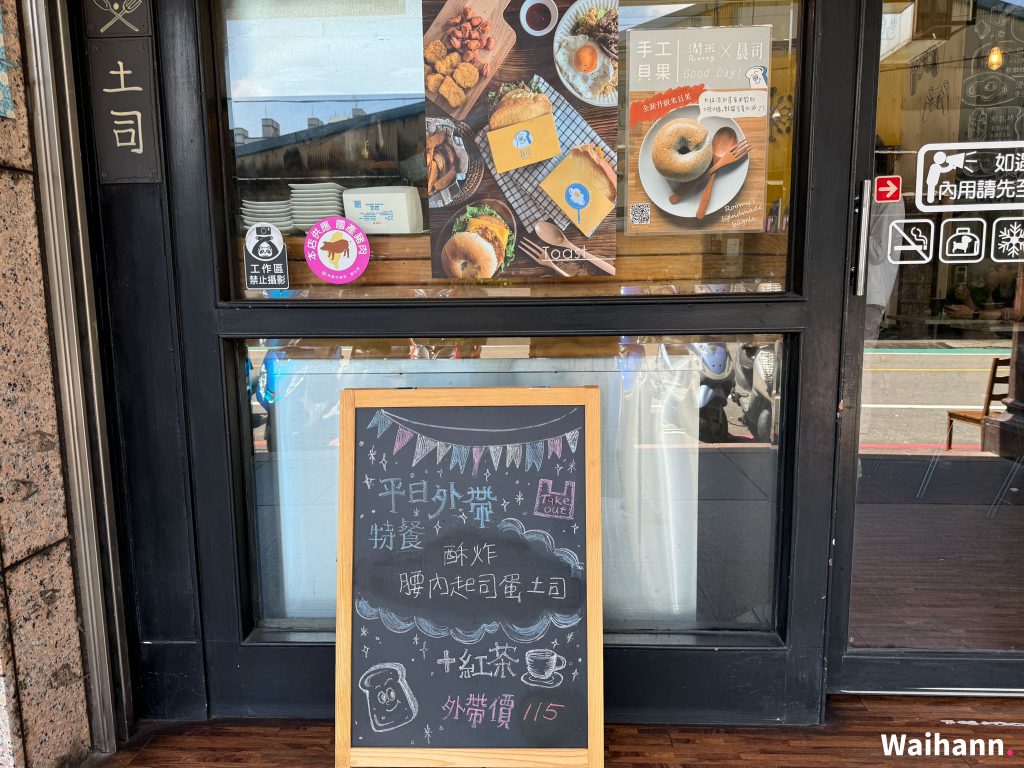 土司
手工
貝果
潤米
Running
×晨司
Good Day!
全新升級米貝果
Toast
Roomi's
handmade
bagels
本店供應 國產豬肉
工作區
禁止攝影
內用請先至
平日外帶
特餐
Take
out
酥炸
腰內起司蛋土司
+紅茶
外帶價 115
Waihann.